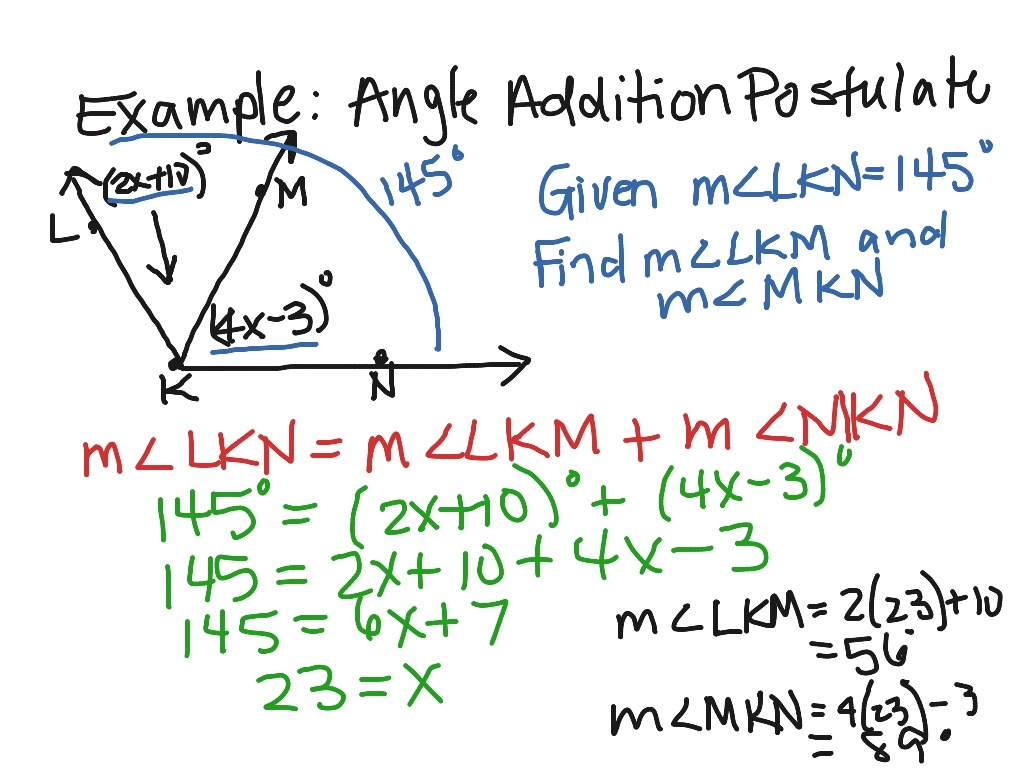 Example: Angle Addition Postulate
(2x+10)°
M
145°
L
(4x-3)°
K
N
Given m∠LKN=145°
Find m∠LKM and
m∠MKN
m∠LKN = m∠LKM + m∠MKN
145° = (2x+10)° + (4x-3)°
145 = 2x+10+4x-3
145 = 6x+7
23 = x
m∠LKM = 2(23)+10
= 56°
m∠MKN = 4(23)-3
= 89°